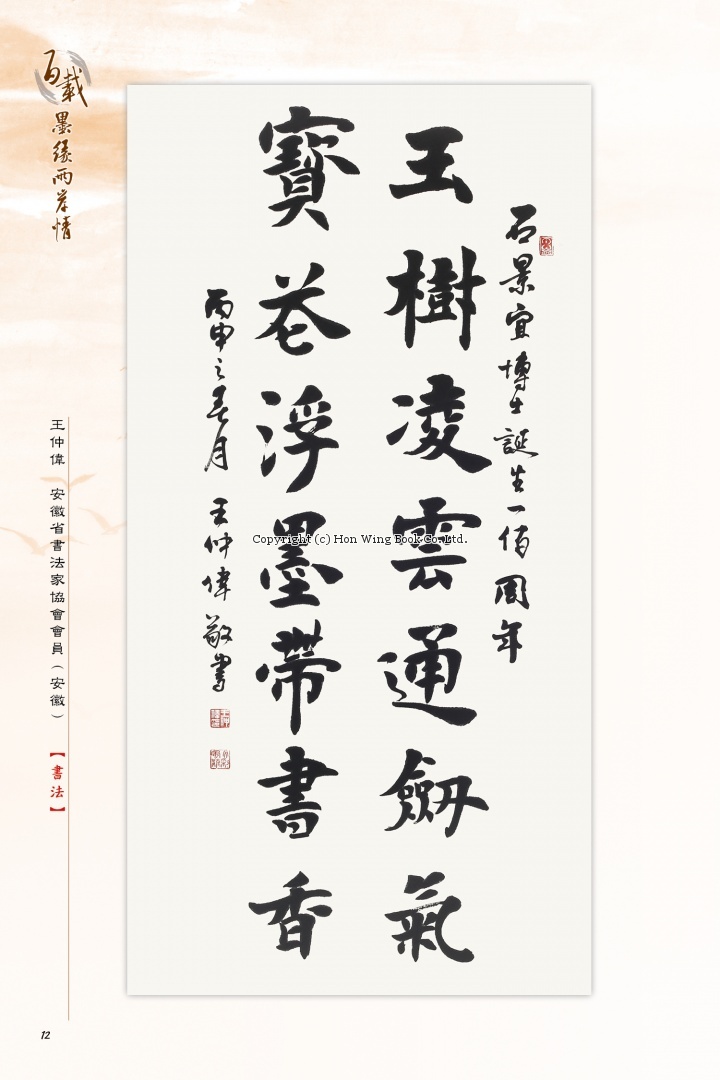 百載
墨緣兩岸情
石景宜博士誕生一佰周年
玉樹凌雲通劒氣
寶花浮墨帶書香
丙申之春月 王仲偉敬書
Copyright (c) Hon Wing Book Co.Ltd.
王仲偉 安徽省書法家協會會員（安徽）
【書法】
12